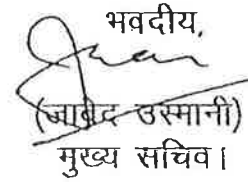 भवदीय,
(जावेद उस्मानी)
मुख्य सचिव।